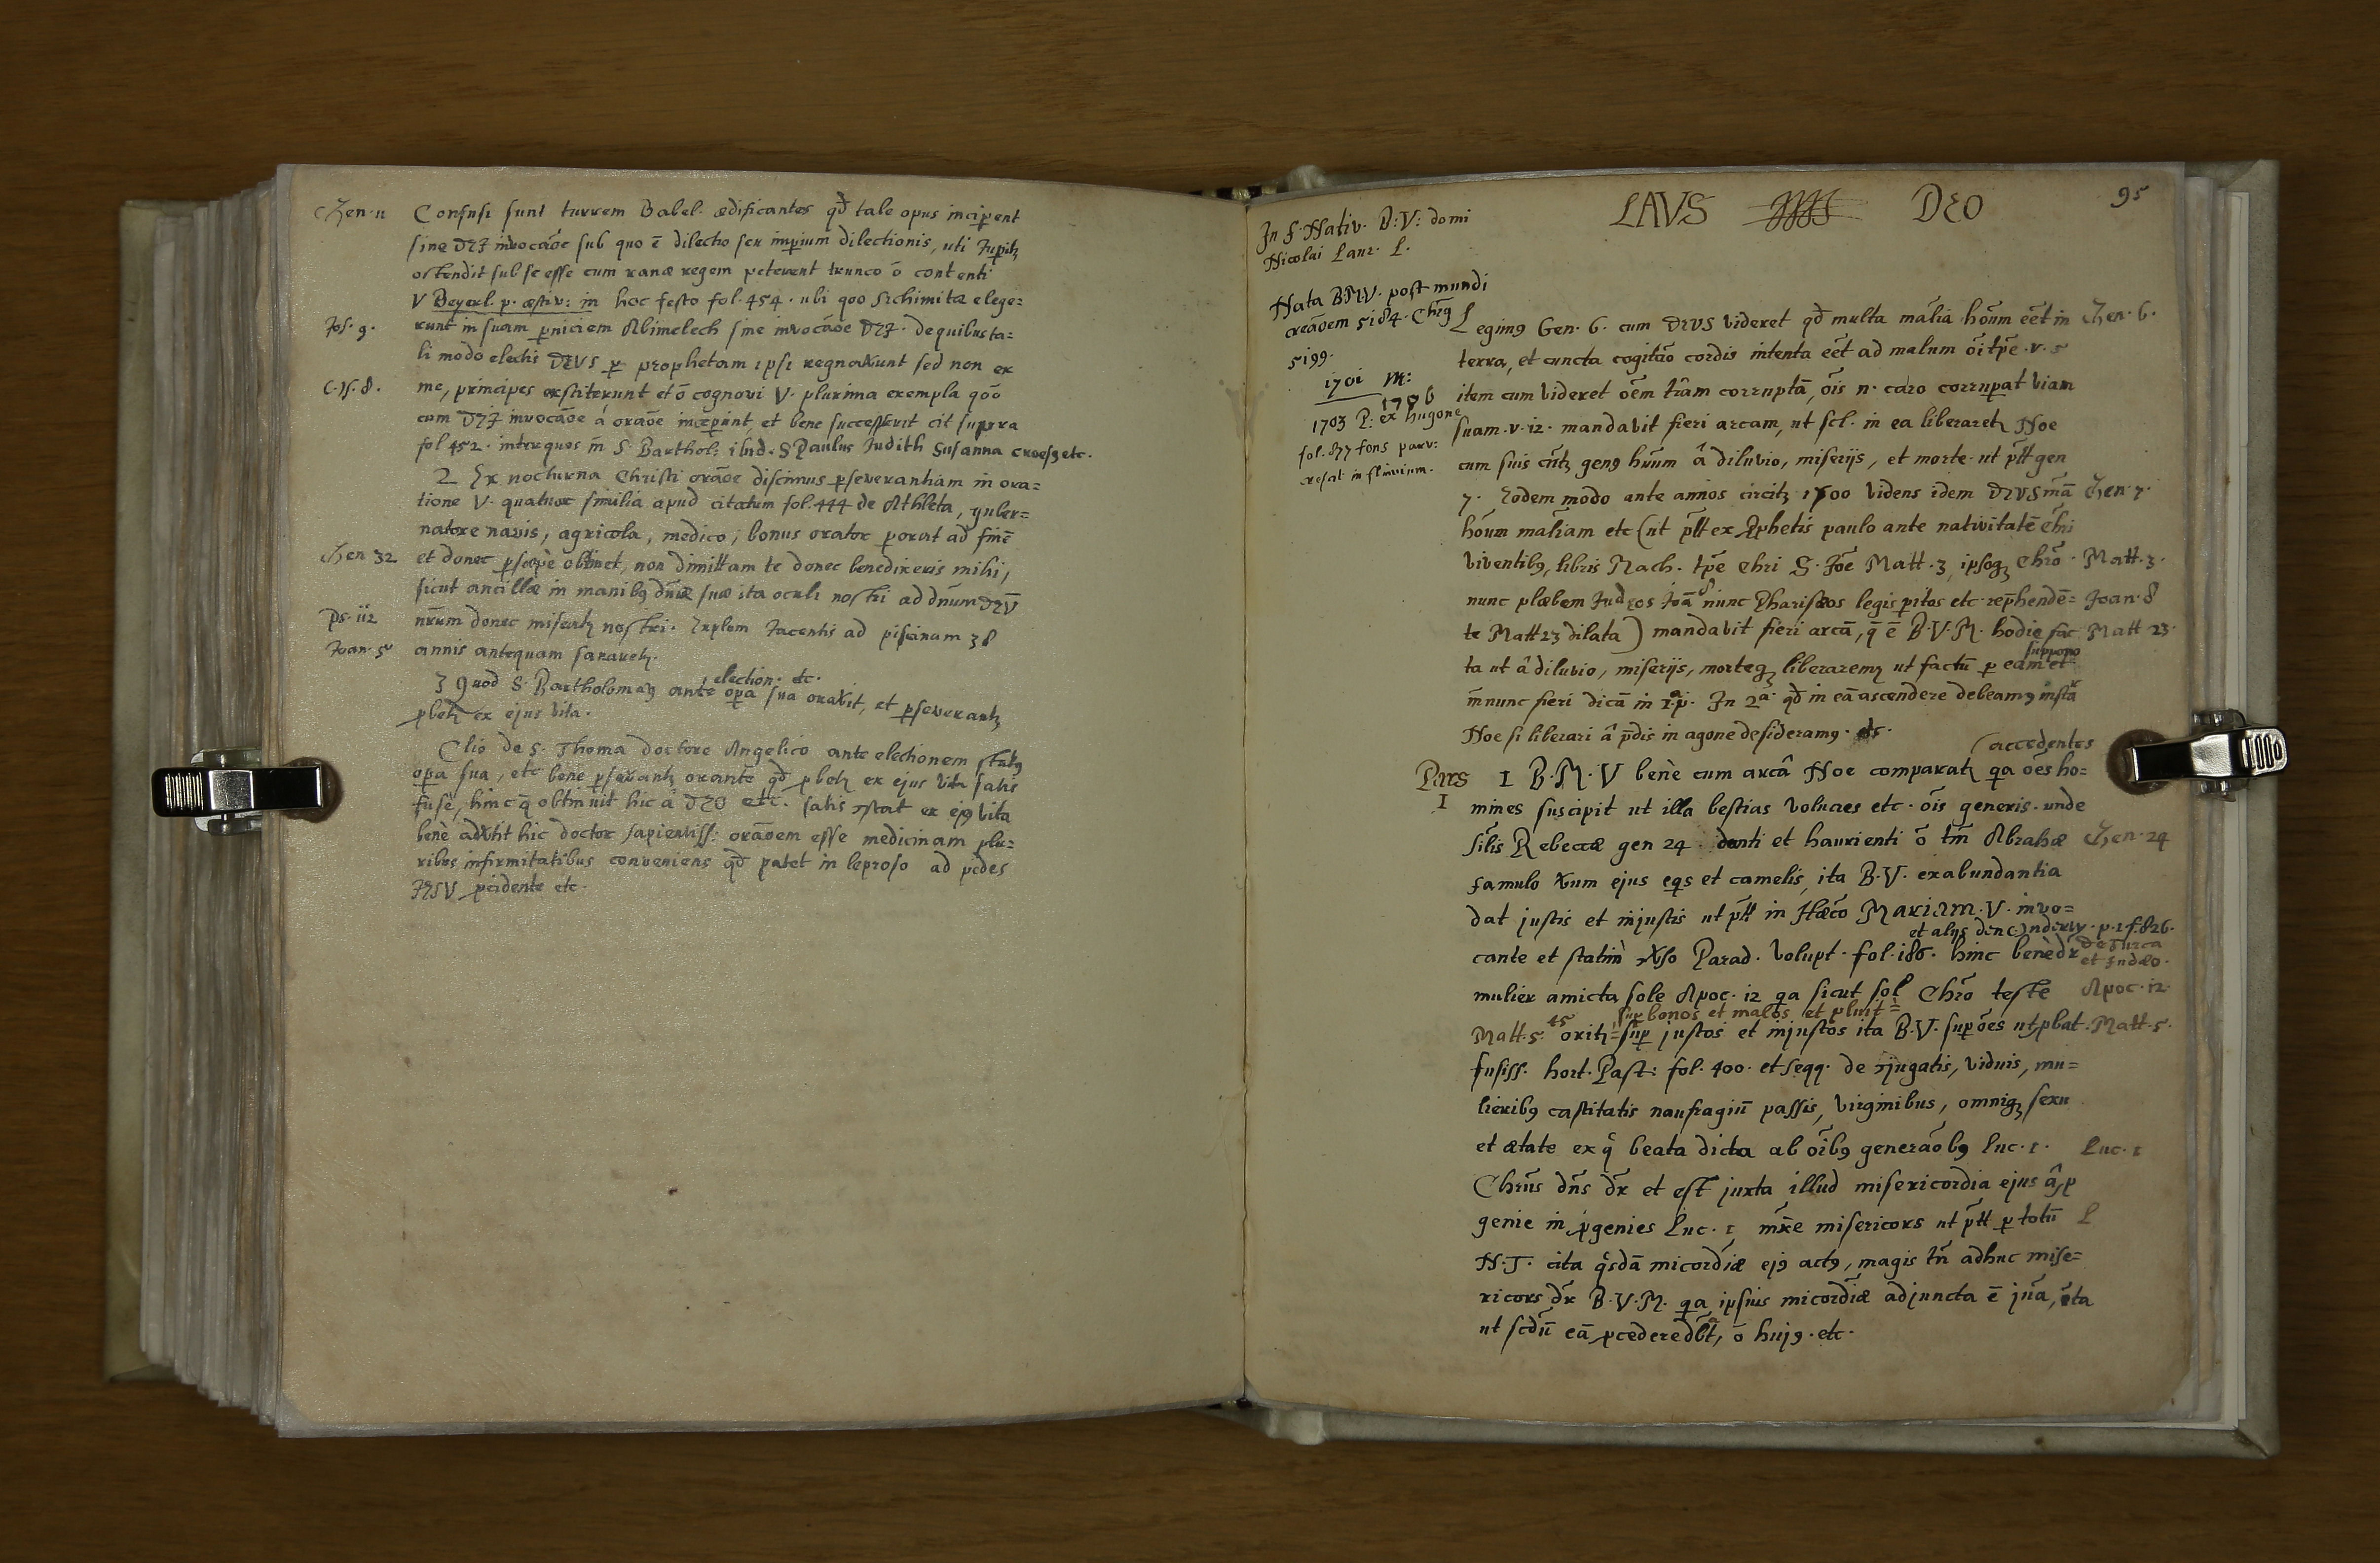 Gen. 11 Confusi sunt turrem Babel. ædificantes qd̃ tale opus inciperent
sine DEI invocãoe sub quo ē dilectio seu imperium dilectionis, uti Jupitꝫ
ostendit sub se esse cum ranæ regem peterent trunco ō contenti
V Beyerl. p. æstiv: in hoc festo fol. 454. ubi qoo Sichimitæ elege=
Jos. 9. runt in suam perniciem Abimelech sine invocãoe DEI. de quibus ta=
li modo electis DEUS per prophetam ipsi regnaverunt sed non ex
C. V. 8. me, principes exstiterunt et ō cognovi V. plurima exempla qōo
cum DEI invocãoe á orãoe inceperint, et bene successerit cit supra
fol 452. inter quos m̃ S. Barthol: ibid. S Paulus Judith Susanna etc.
2 Ex nocturna Christi orãoe discimus perseverantiam in ora=
tione V. quatuor similia apud citatum fol. 444 de Athleta, guber=
natore navis, agricola, medico; bonus orator perorat ad finē
Gen 32 et donec persæpè obtinet, non dimittam te donec benedixeris mihi,
sicut ancillæ in manibꝰ dñæ suæ ita oculi nostri ad dñum DEŪ
Ps. 112 nr̃um donec misereatꝫ nostri. Explum Jacentis ad piscinam 38
Joan. 5 annis antequam sanaretꝫ.
election. etc.
3 Quod S. Bartholomæꝰ ante opera sua oravit, et perseverantꝫ
probetꝫ ex ejus vita.
Clio de S. Thoma doctore Angelico ante electionem statꝰ
opera sua, etc bene perseverantꝫ orante qd̃ probetꝫ ex ejus vita satis
fusè, hinc q̄ obtinuit hic â DEO etc. satis ꝯstat ex ejꝰ vita
benè advertit hic doctor sapientiss: orãoem esse medicinam plu=
ribus infirmitatibus conveniens qd̃ patet in leproso ad pedes
JESU procidente etc.
95
LAUS DEO
In f. Nativ. B: V: domi
Nicolai Laur. L.
Nata BMV. post mundi
creãoem 5184. Chr̃ꝰ
5199.
1701 m:
1706
1703 P: ex hugone
fol. 877 fons parv:
cresat in fluvium.
Legimꝰ Gen. 6. cum DEUS videret qd̃ multa mãlia hõum eẽt in Gen. 6.
terra, et cuncta cogitão cordis intenta eẽt ad malum oĩ tpẽ. v. 5
item cum videret oẽm trãm corruptā, oĩs n. caro corruperat viam
suam. v. 12. mandavit fieri arcam, ut scl. in ea liberaretꝫ Noe
cum suis genꝰ hũum â diluvio, miserijs, et morte. ut ptt̃ gen
7. Eodem modo ante annos circitꝫ 1700 videns idem DEUS Gen. 7.
hõum malĩam etc (ut ptt̃ ex Pphetis paulo ante nativitatē Chr̃i
viventibꝰ, libris Mach. tpẽ Chr̃i S. Joẽ Matt. 3, ipsoqꝫ Chr̃o Matt. 3.
nunc plæbem Judæos Joã 8 nunc Pharisæos legis peritos etc. rep̃hendē= Joan. 8
te Matt 23 dilata) mandavit fieri arcā, q̄ ē B. V. M. hodie fac Matt 23.
suppono
ta ut â diluvio, miserijs, morteqꝫ liberaremꝫ ut factū per eam et
m̃ nunc fieri dicā in 1ª p. In 2ª. qd̃ in eā ascendere debeamꝰ instar
Noe si liberari â p̄dis in agone desideramꝰ. etc.
(accedentes
Pars 1 B. M. V benè cum arcâ Noe comparatꝫ qa oẽs ho=
1 mines suscipit ut illa bestias volucres etc. oĩs generis. unde
sĩlis Rebeccæ gen 24. danti et haurienti ō tm̃ Abrahæ Gen. 24
famulo verum ejus eqs et camelis, ita B. V. exabundantia
dat justis et injustis ut ptt̃ in Hæco MARIAM. V. invo=
et alijs p. 1 f. 826.
cante et statim ꝟso Parad. Volupt. fol. 186. hinc benè dr̃ de Turca
et Judæo.
mulier amicta sole Apoc. 12 qa sicut sol Chr̃o teste Apoc. 12.
super bonos et malos, et pluit=
Matt. 5. 45 oritꝫ= super justos et injustos ita B. V. super oẽs ut probat. Matt. 5.
fusiss. hort. Past: fol. 400. et seqq. de ꝯjugatis, viduis, mu=
lieribꝰ castitatis naufragiū passis, virginibus, omniqꝫ sexu
et ætate ex q̊ beata dicta ab oĩbꝰ generãobꝰ Luc. 1. Luc. 1
Chr̃us dñs dr̃ et est juxta illud misericordia ejus â pro
genie in progenies Luc. 1, mr̃e misericors ut ptt̃ per totū L
N. T. cita q̊sdã micordĩæ ejꝰ actꝰ, magis tñ adhuc mise=
ricors dr̃ B. V. M. qa ipsius micordĩæ adjuncta ē jũa, ita
ut scdū eā procedere dbt̃, ō hujꝰ. etc.